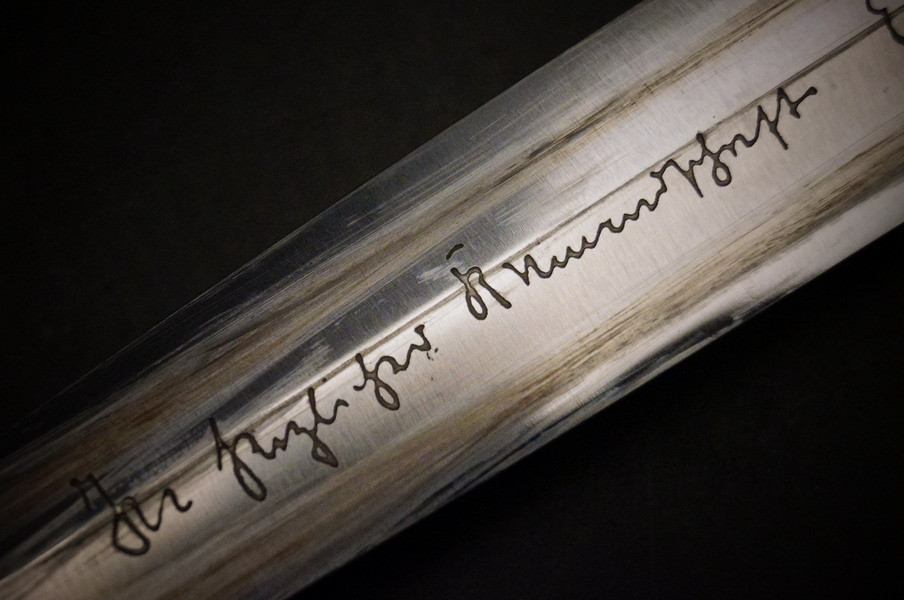 In herzlicher Freundschaft